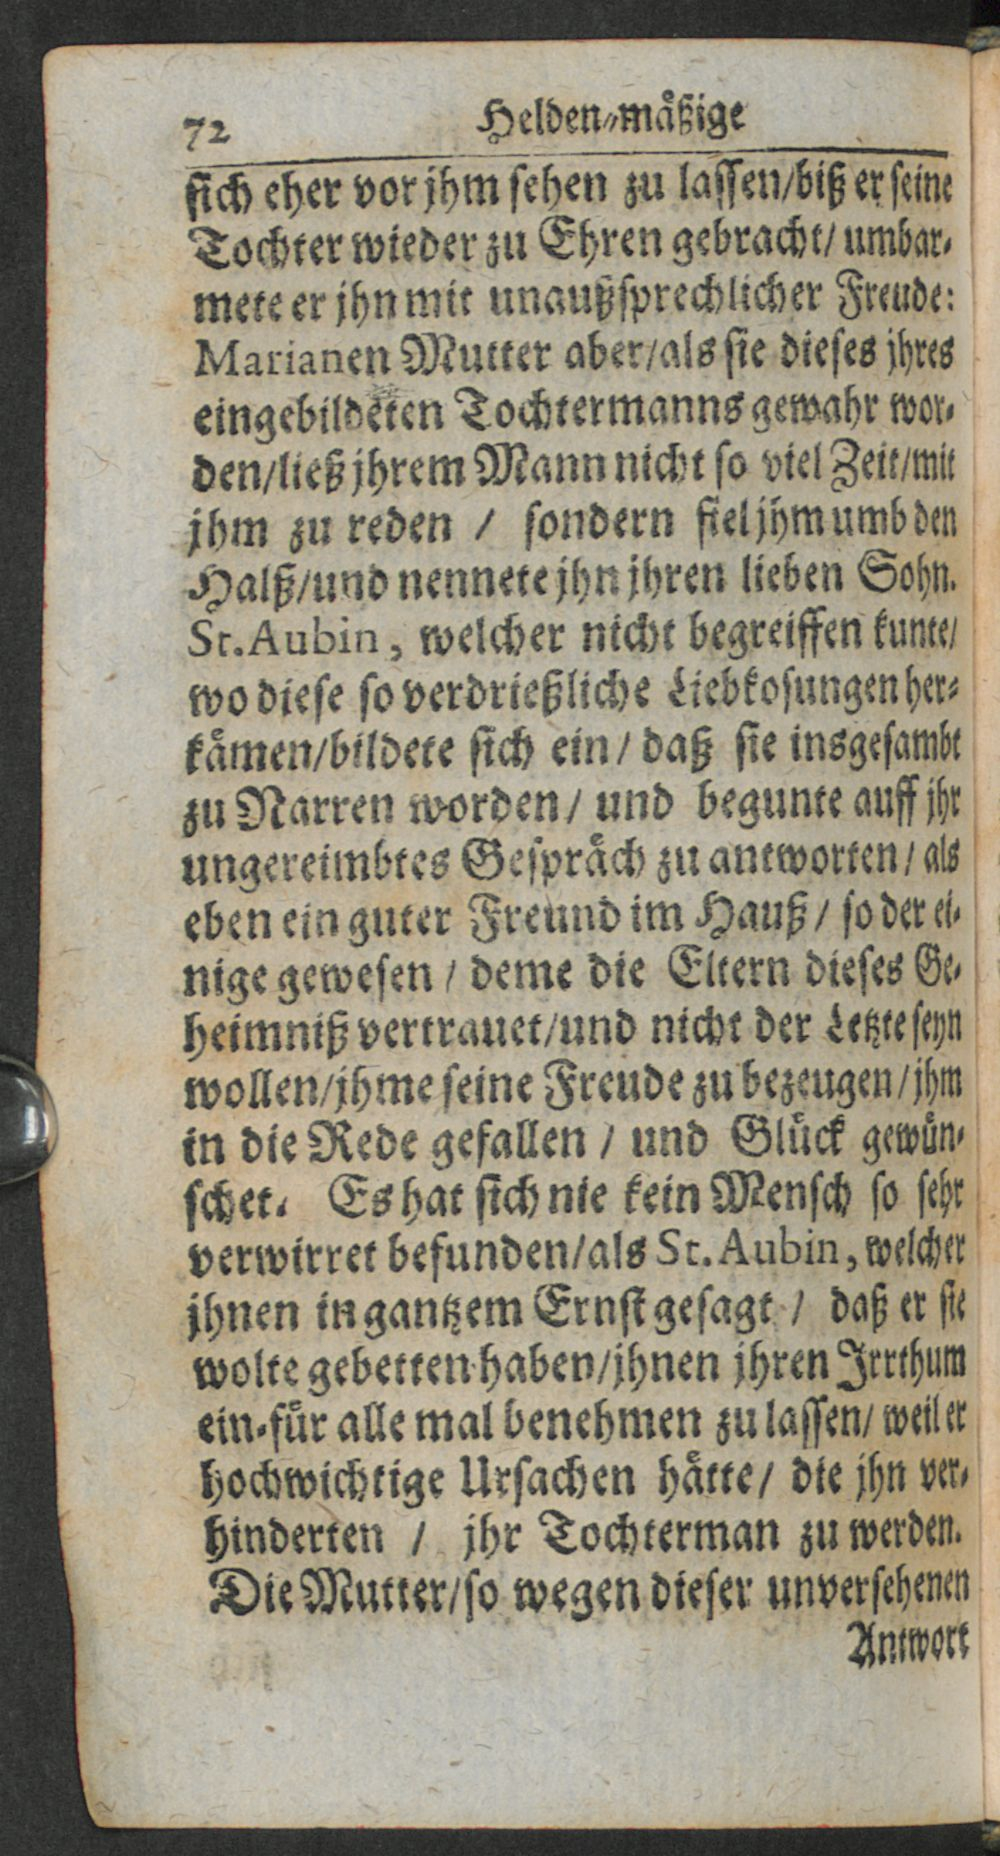 72 Helden-mäßige
sich eher vor jhm sehen zu lassen/biß er seine
Tochter wieder zu Ehren gebracht/ umbar-
mete er jhn mit unaußsprechlicher Freude:
Marianen Mutter aber/als sie dieses jhres
eingebildeten Tochtermanns gewahr wor-
den/ließ jhrem Mann nicht so viel Zeit/mit
jhm zu reden / sondern fiel jhm umb den
Halß/und nennete jhn jhren lieben Sohn.
St. Aubin, welcher nicht begreiffen kunte/
wo diese so verdrießliche Liebkosungen her-
kämen/bildete sich ein/ daß sie insgesambt
zu Narren worden/ und begunte auff jhr
ungereimbtes Gespräch zu antworten/ als
eben ein guter Freund im Hauß/ so der ei-
nige gewesen/ deme die Eltern dieses Ge-
heimniß vertrauet/und nicht der Letzte seyn
wollen/jhme seine Freude zu bezeugen/jhm
in die Rede gefallen / und Glück gewün-
schet. Es hat sich nie kein Mensch so sehr
verwirret befunden/als St. Aubin, welcher
jhnen in gantzem Ernst gesagt / daß er sie
wolte gebetten haben/jhnen jhren Irrthum
ein-für alle mal benehmen zu lassen/ weil er
hochwichtige Ursachen hätte/ die jhn ver-
hinderten / jhr Tochterman zu werden.
Die Mutter/so wegen dieser unversehenen
Antwort